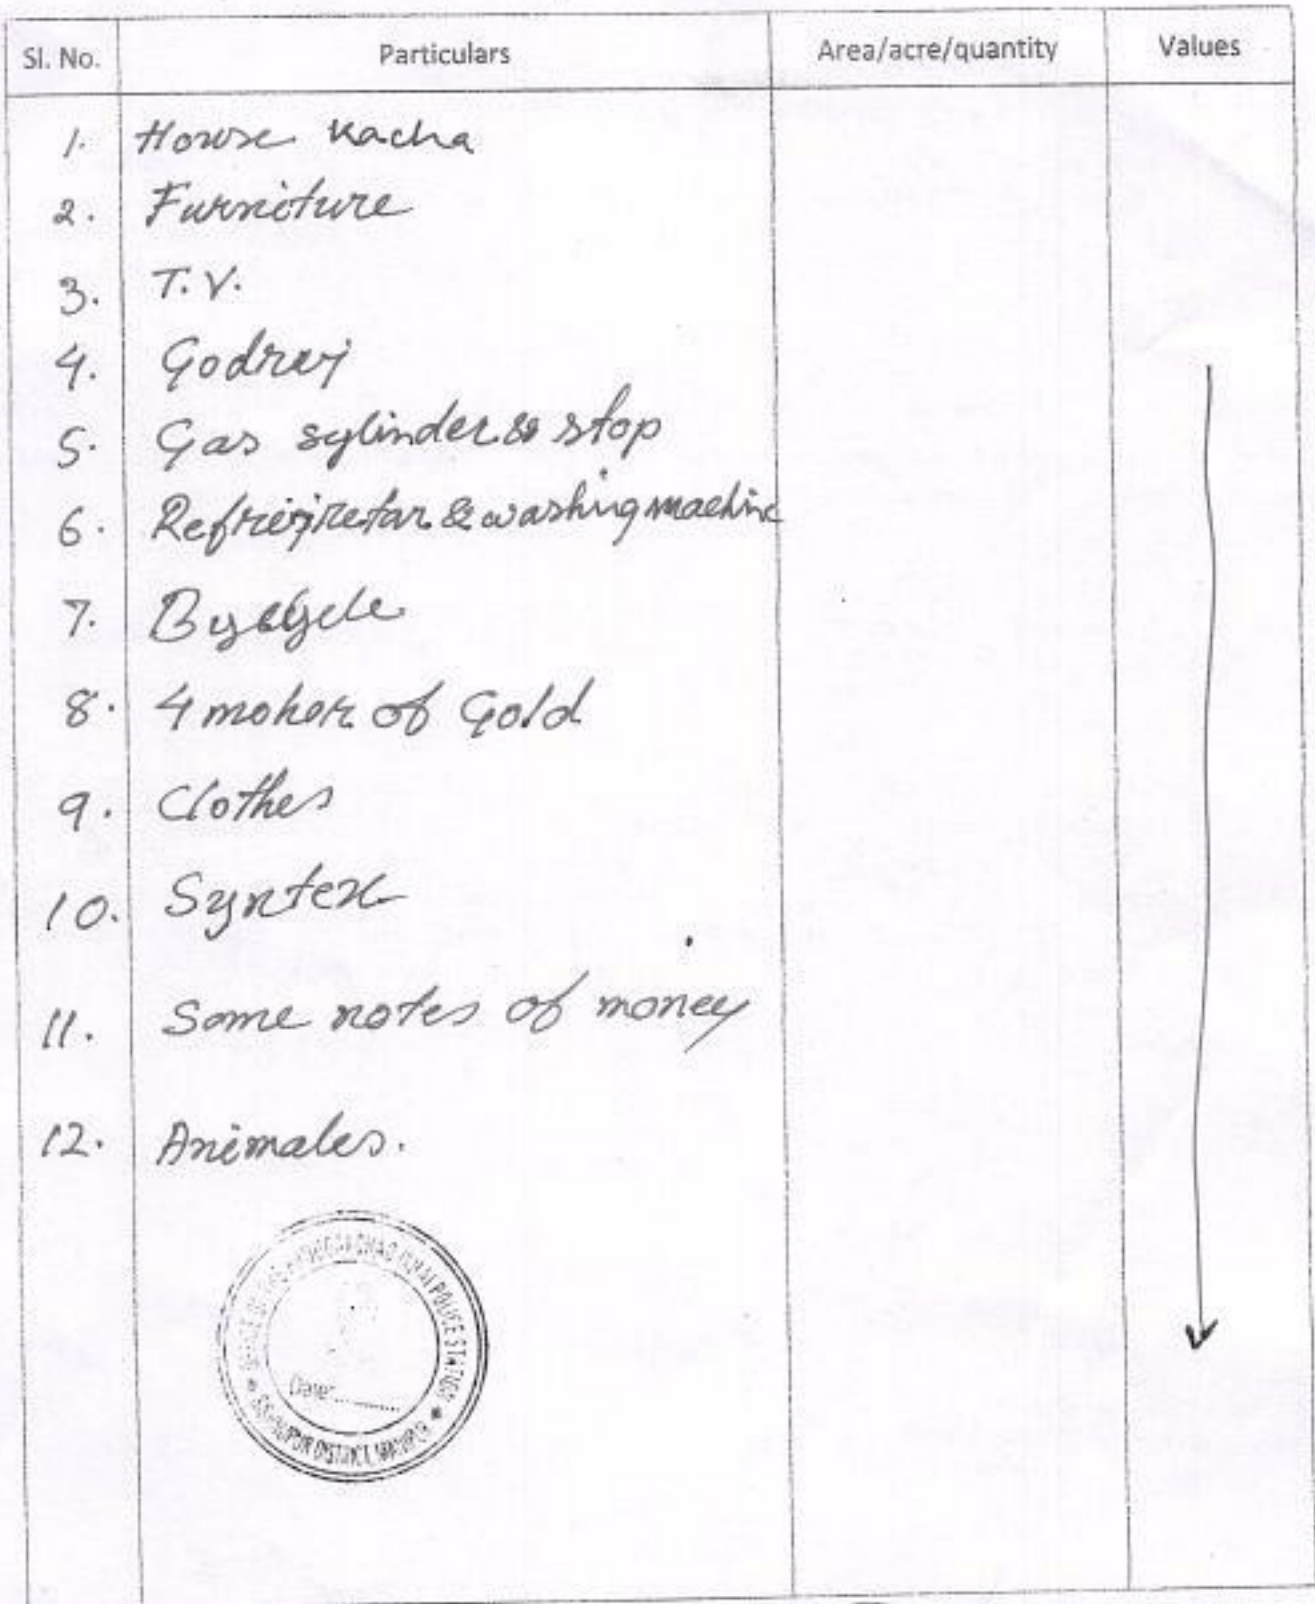 Sl. No. Particulars Area/acre/quantity Values
1. House kacha
2. Furniture
3. T.V.
4. Godrej
5. Gas sylinder & stop
6. Refrijiretar & washing machine
7. Byscycle
8. 4 moher of Gold
9. Clothes
10. Syntex
11. Some notes of money
12. Animales.
POLICE STATION
Date:
DISTRICT, MANIPUR